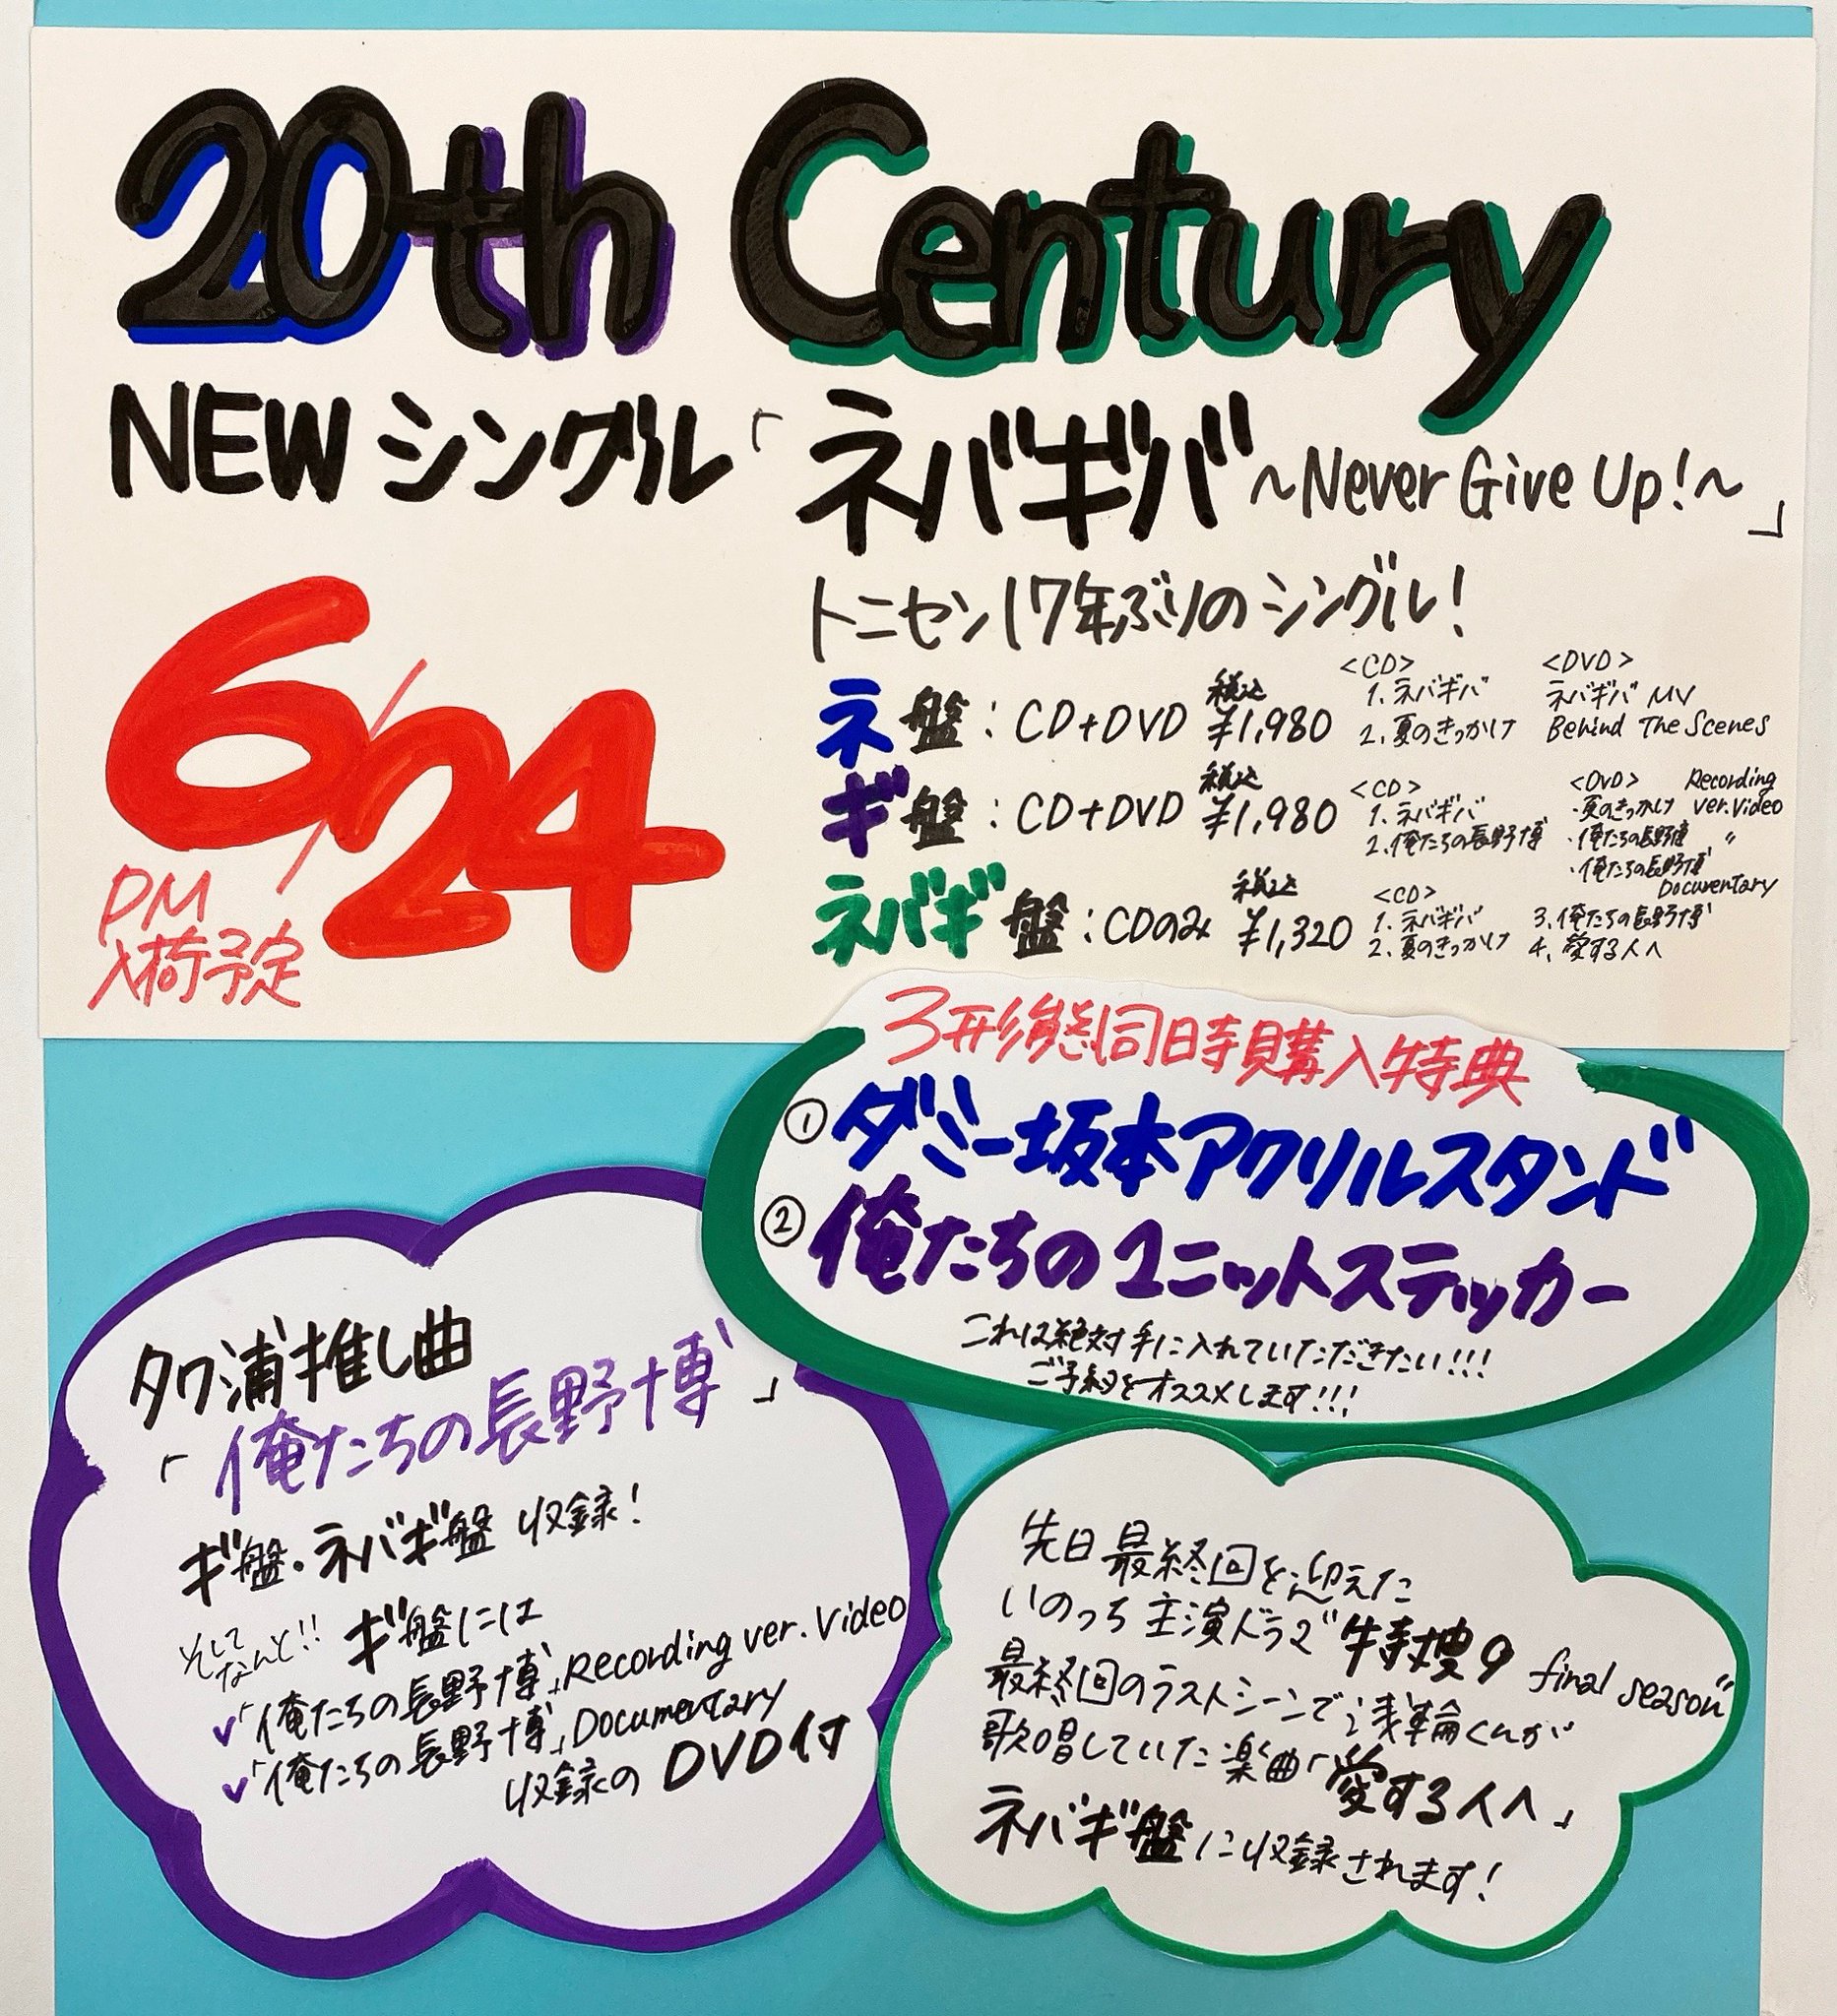 20th Century
NEW シングル「ネバギバ ～Never Give Up!～」
6/24
PM
入荷予定
トニセン17年ぶりのシングル!
ネ盤：CD+DVD 税込 ¥1,980
<CD>
1. ネバギバ
2. 夏のきっかけ
<DVD>
ネバギバ MV
Behind The Scenes
ギ盤：CD+DVD 税込 ¥1,980
<CD>
1. ネバギバ
2. 俺たちの長野博
<DVD> Recording
・夏のきっかけ ver.Video
・俺たちの長野博 〃
・俺たちの長野博
Documentary
ネバギ盤：CDのみ 税込 ¥1,320
<CD>
1. ネバギバ 3. 俺たちの長野博
2. 夏のきっかけ 4. 愛する人へ
3形態同時購入特典
① ダミー坂本アクリルスタンド
② 俺たちのユニットステッカー
これは絶対手に入れていただきたい!!!
ご予約をオススメします!!!
タワ浦推し曲
「俺たちの長野博」
ギ盤・ネバギ盤 収録!
そして
なんと!! ギ盤には
✓「俺たちの長野博」Recording ver. Video
✓「俺たちの長野博」Documentary
収録の DVD付
先日最終回を迎えた
いのっち主演ドラマ"特捜9 final season"
最終回のラストシーンで浅輪くんが
歌唱していた楽曲「愛する人へ」
ネバギ盤に収録されます!